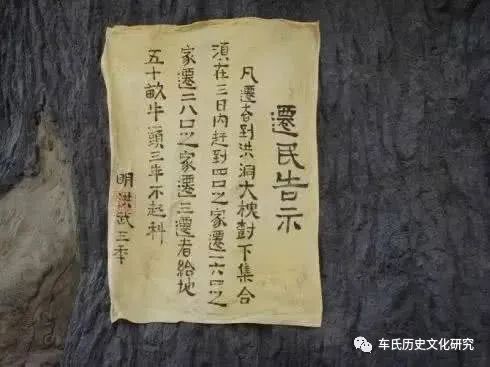 遷民告示
凡遷者到洪洞大槐樹下集合
須在三日内赶到四口之家遷一六口之
家遷二八口之家遷三遷者給地
五十畝牛頭三年不起科
明洪武三年
车氏历史文化研究